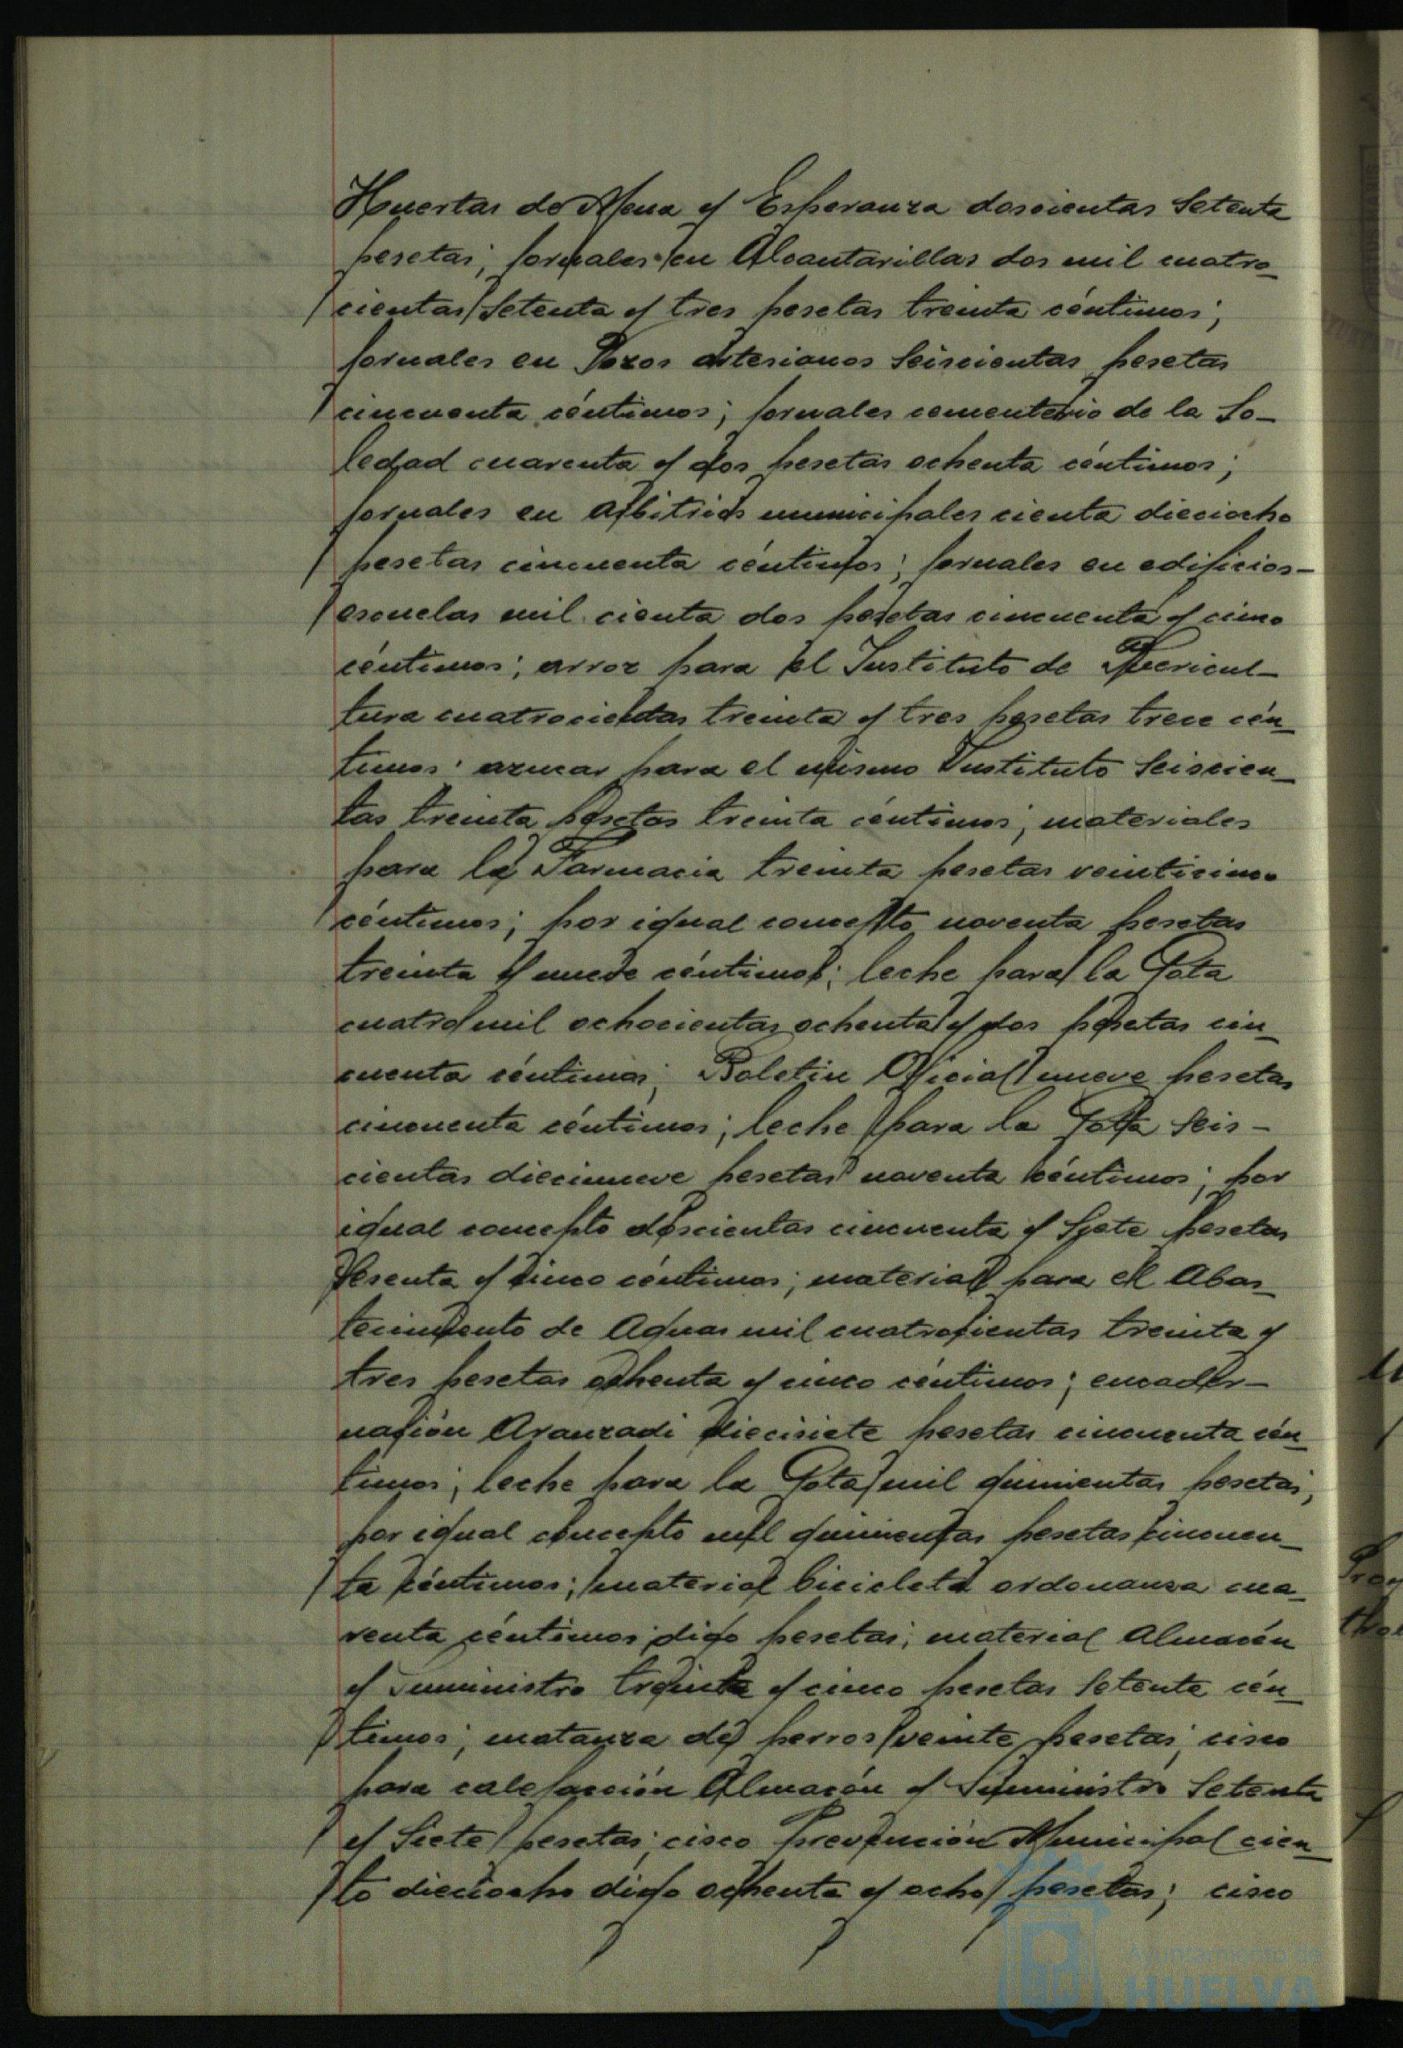 Huertas de Mena y Esperanza doscientas setenta
pesetas; jornales en Alcantarillas dos mil cuatro-
cientas setenta y tres pesetas treinta céntimos;
jornales en Pozos artesianos seiscientas pesetas
cincuenta céntimos; jornales cementerio de la So-
ledad cuarenta y dos pesetas ochenta céntimos;
jornales en Arbitrios municipales cienta dieciocho
pesetas cincuenta céntimos; jornales en edificios-
escuelas mil cienta dos pesetas cincuenta y cinco
céntimos; arroz para el Instituto de Puericul-
tura cuatrocientas treinta y tres pesetas trece cén-
timos; azucar para el mismo Instituto seiscien-
tas treinta pesetas treinta céntimos; materiales
para la Farmacia treinta pesetas veinticinco
céntimos; por igual concepto noventa pesetas
treinta y nueve céntimos; leche para la Gota
cuatro mil ochocientas ochenta y dos pesetas cin-
cuenta céntimos; Boletin Oficial nueve pesetas
cincuenta céntimos; leche para la Gota seis-
cientas diecinueve pesetas noventa céntimos; por
igual concepto doscientas cincuenta y siete pesetas
sesenta y cinco céntimos; material para el Abas-
tecimiento de Aguas mil cuatrocientas treinta y
tres pesetas ochenta y cinco céntimos; encader-
nación Aranzadi diecisiete pesetas cincuenta cén-
timos; leche para la Gota mil quinientas pesetas;
por igual concepto mil quinientas pesetas cincuen-
ta céntimos; material bicicleta ordenanza cua-
renta céntimos digo pesetas; material Almacén
y Suministro treinta y cinco pesetas setenta cén-
timos; matanza de perros veinte pesetas; cisco
para calefacción Almacén y Suministro setenta
y siete pesetas; cisco Prevención Municipal cien-
to dieciocho digo ochenta y ocho pesetas; cisco
Ayuntamiento de
HUELVA